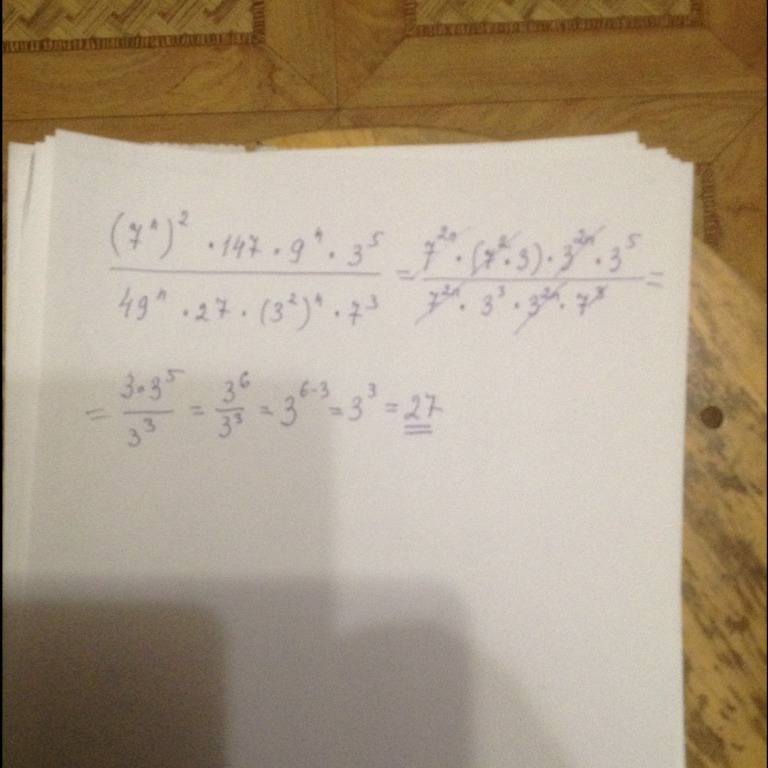 (7ⁿ)² · 147 · 9ⁿ · 3⁵ / 49ⁿ · 27 · (3²)ⁿ · 7³ = 7²ⁿ · (7² · 3) · 3²ⁿ · 3⁵ / 7²ⁿ · 3³ · 3²ⁿ · 7³ =
= 3·3⁵ / 3³ = 3⁶ / 3³ = 3⁶⁻³ = 3³ = 27